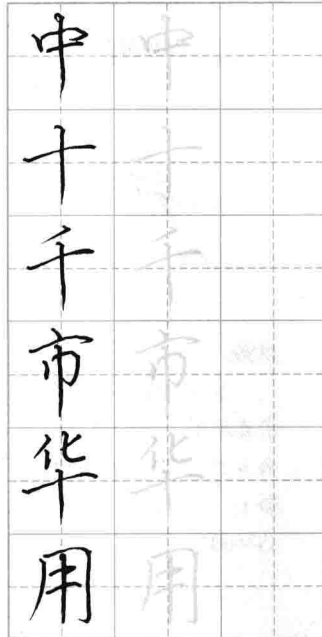 中 中
十 十
千 千
市 市
华 华
用 用